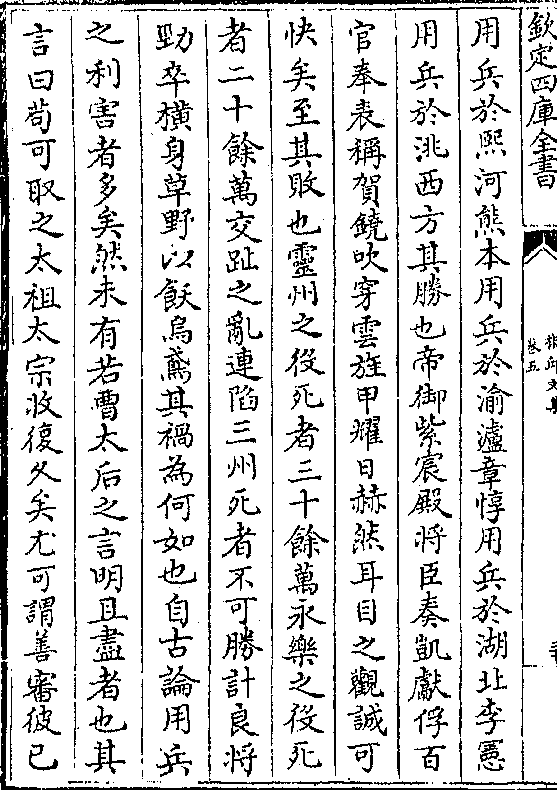 欽定四庫全書
卷五
用兵於熙河熊本用兵於渝瀘章惇用兵於湖北李憲
用兵於洮西方其勝也帝御紫宸殿將臣奏凱獻俘百
官奉表稱賀鐃吹穿雲旌甲耀日赫然耳目之觀誠可
快矣至其敗也靈州之役死者三十餘萬永樂之役死
者二十餘萬交趾之亂連陷三州死者不可勝計良將
勁卒橫身草野以飫烏鳶其禍為何如也自古論用兵
之利害者多矣然未有若曹太后之言明且盡者也其
言曰苟可取之太祖太宗收復久矣尤可謂善審彼已